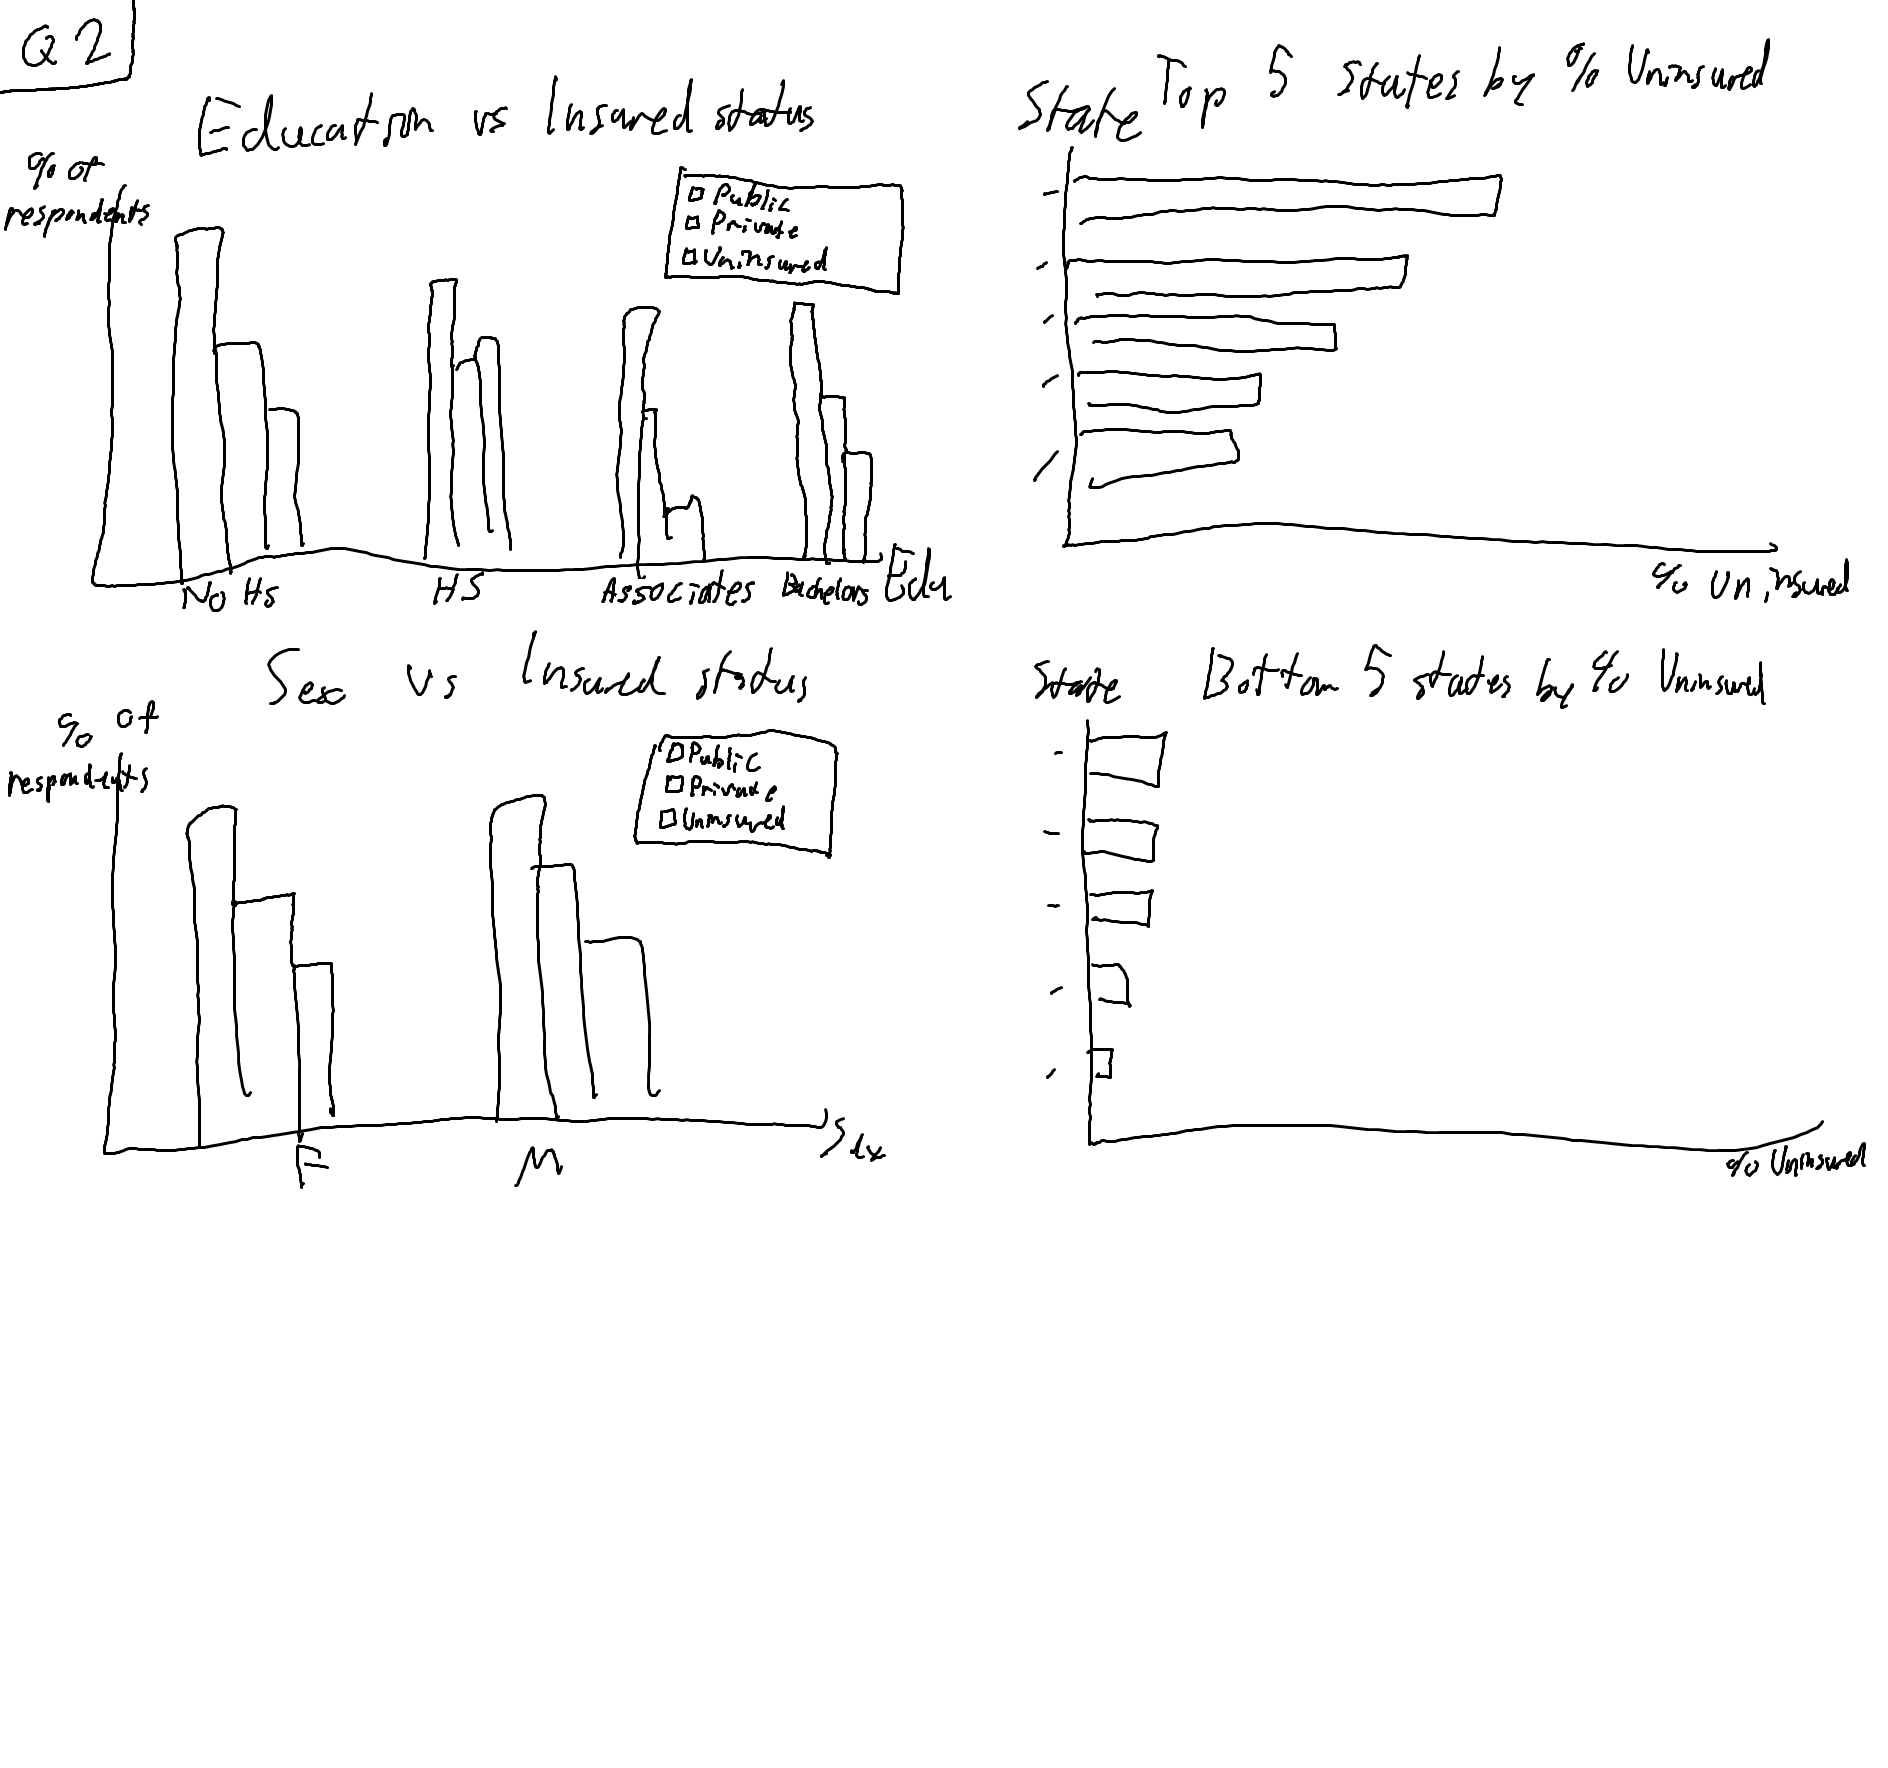 Q2
Education vs Insured status
% of
respondents
Public
Private
Uninsured
No HS
HS
Associates
Bachelors
Edu
State
Top 5 states by % Uninsured
% Uninsured
Sex vs Insured status
% of
respondents
Public
Private
Uninsured
F
M
Sex
State
Bottom 5 states by % Uninsured
% Uninsured